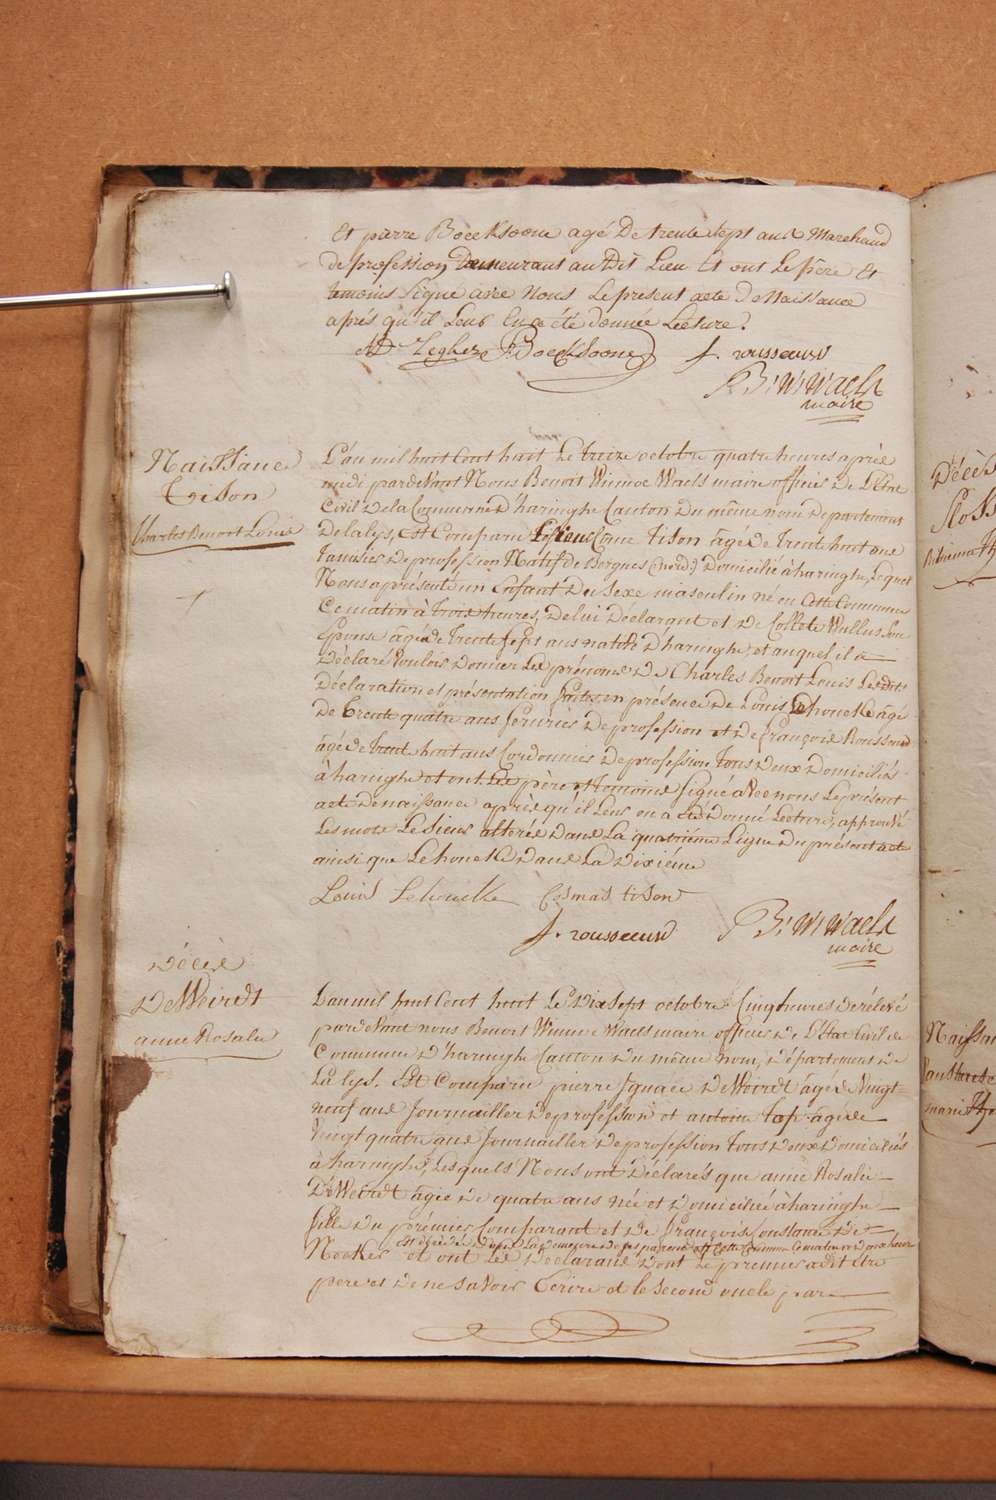 Et pierre Boecksoone agé De trente Sept ans Marchand
de profession Demeurans au Dit Lieu Et ont Le Père Et
temoins Signé avec Nous Le present acte De Naissance
aprés qu'il Leur En a été donnée Lecture.
P. Boecksoone J. rousseeuw
B: W: Waels
maire
Naissance
Tison
Charles Benoit Louis
L'an mil huit Cent huit Le treize octobre quatre heures après
midi pardevant Nous Benoit Winnoc Waels maire officier De L'Etat
Civil de la Commune D'haringhe Canton Du même nom Departement
De la lys, Est Comparu Le Sieur Come Tison âgé De Trente huit ans
De profession Natif de Bergues (Nord) Domicilié à haringhe, Lequel
Nous a présenté un Enfant Du Sexe masculin né en Cette Commune
Ce matin à trois heures, De lui Déclarant et De Collete Wullus Son
Epouse âgée de Trente Sept ans native D'haringhe, et auquel il a
Déclaré Vouloir Donner Les prénoms De Charles Benoit Louis Les dits
Déclaration et présentation faites en présence De Louis Lehoucke âgé
De Trente quatre ans Serurier De profession et De François Rousseeuw
âgé de Trente huit ans Cordonnier De profession Tous Deux Domiciliés
à haringhe et ont Les père et Temoins Signé avec nous Le présent
acte De naissance après qu'il Leur en a été Donné Lecture, approuvé
Les mots Le Sieur altérés Dans La quatrième Ligne Du présent acte
ainsi que Lehoucke Dans La Dixième
Louis Lehoucke Cosmas tison
J. rousseeuw B: W: Waels
maire
Décès
De Weirdt
anne Rosalie
L'an mil huit Cent huit Le Dix Sept octobre Cinq heures De rélevé
pardevant nous Benoit Winnoc Waels maire officier De L'Etat Civil de
Commune D'haringhe Canton Du même nom, Département De
La lys. Est Comparu pierre Ignace De Weirdt âgé De Vingt
neuf ans Journailler De profession et antoine top âgé De
Vingt quatre ans Journailler De profession Tous Deux Domiciliés
à haringhe, Lesquels Nous ont Déclarés que anne Rosalie
De Weirdt âgée De quatre ans née et Domiciliée à haringhe
fille Du prémier Comparant et De Françoise Constance De
Est décédée Dans La Demeure De ses parents en Cette Commune Ce matin à onze heures
Necker et ont Les Déclarans Dont Le premier a dit Etre
père et De ne savoir Ecrire et le Second oncle par
Décès
Naissan